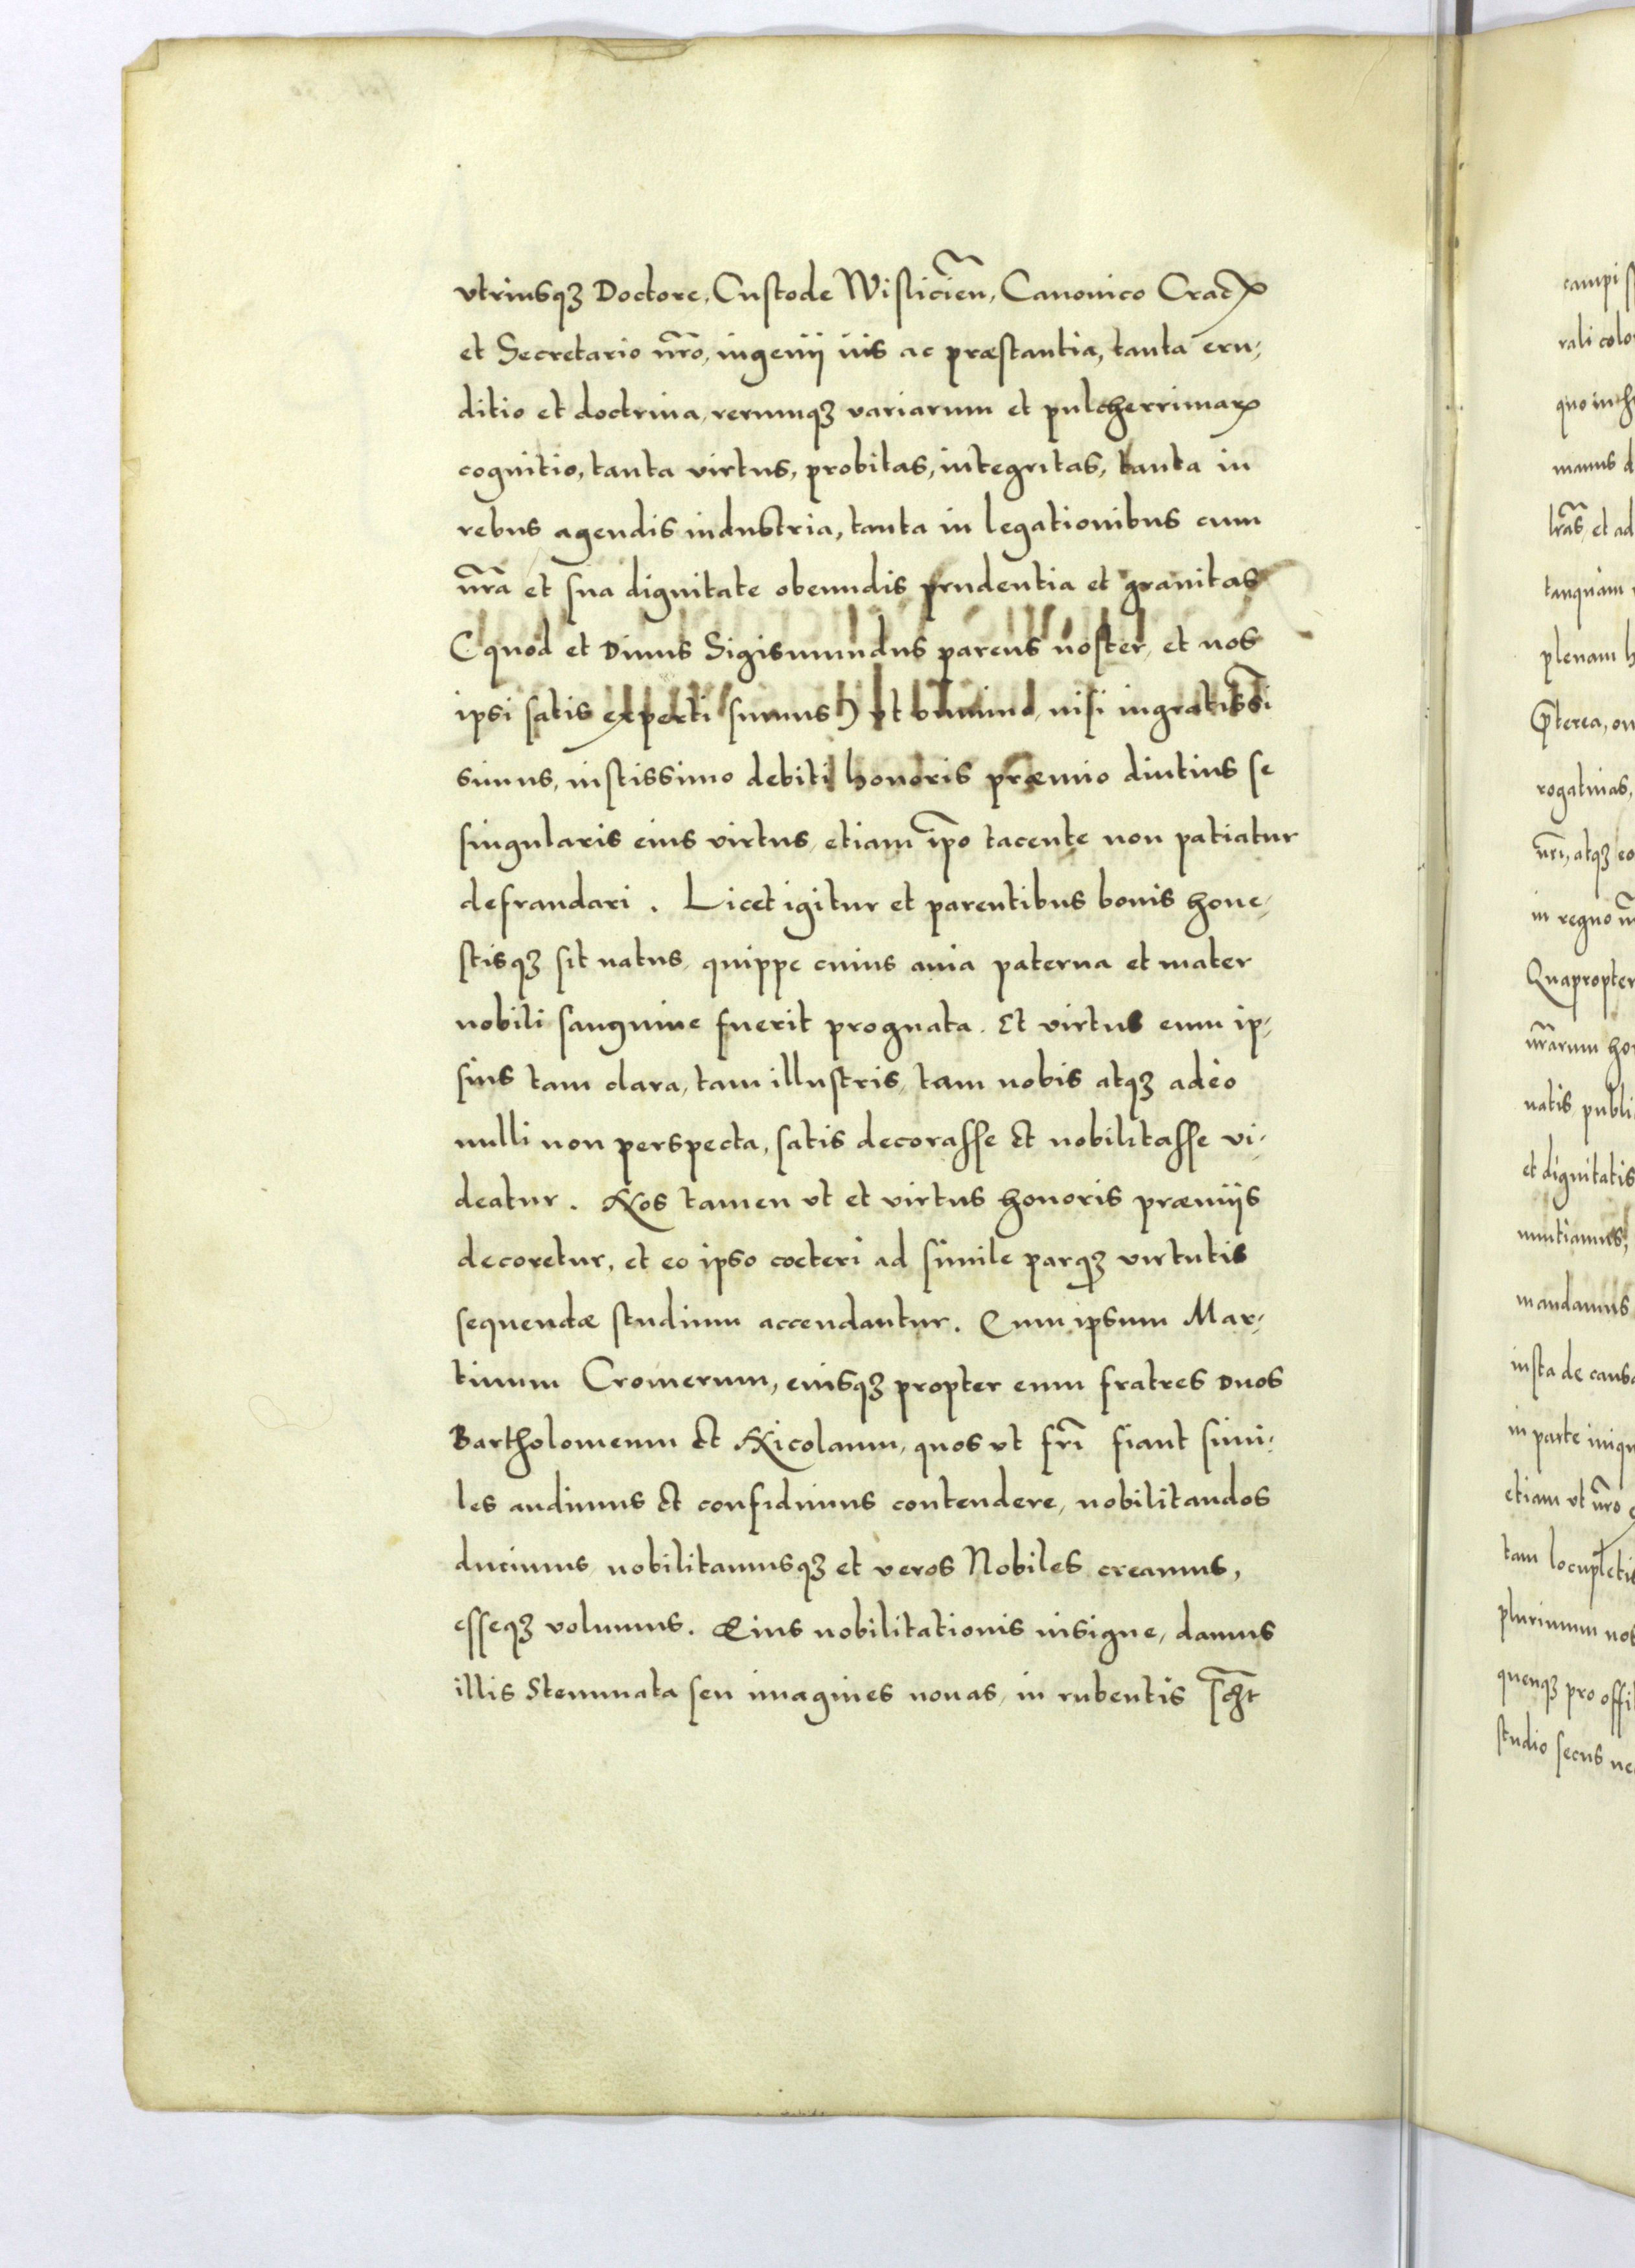 vtriusqȝ Doctore, Custode Wisliciẽn, Canonico Cracꝝ
et Secretario nr̃o, ingenij uis ac præstantia, tanta eru,
ditio et doctrina, rerumqȝ variarum et pulcherrimaꝝ
cognitio, tanta virtus, probitas, integritas, tanta in
rebus agendis industria, tanta in legationibus cum
nr̃a et sua dignitate obeundis prudentia et grauitas
(quod et Diuus Sigismundus parens noster, et nos
ipsi satis experti sumus) vt omnino, nisi ingratissĩ
simus, iustissimo debiti honoris præmio diutius se
singularis eius virtus, etiam ip̃o tacente non patiatur
defraudari. Licet igitur et parentibus bonis hone,
stisqȝ sit natus, quippe cuius auia paterna et mater
nobili sanguine fuerit prognata. Et virtus eum ip,
sius tam clara, tam illustris, tam nobis atqȝ adeò
nulli non perspecta, satis decorasse et nobilitasse vi,
deatur. Nos tamen vt et virtus honoris præmijs
decoretur, et eo ipso cœteri ad simile parqȝ virtutis
sequendæ studium accendantur. Eum ipsum Mar,
tinum Cromerum, eiusqȝ propter eum fratres duos
Bartholomeum et Nicolaum, quos vt fr̃i fiant simi,
les audimus et confidimus contendere, nobilitandos
ducimus, nobilitamusqȝ et veros Nobiles creamus,
esseqȝ volumus. Eius nobilitationis insigne, damus
illis Stemmata seu imagines nouas, in rubentis
campi
rali colo
quo in
manus d
lr̃as, et ad
tanquam
plenam h
terea, om
rogatiuas,
nr̃i, atqȝ eo
in regno
Quapropter
nr̃arum ho
natis, publi
et dignitatis
nuntiamus,
mandamus
iusta de caus
in parte iniqu
etiam vt nr̃o
tam locupleti
plurimum nob
quenqȝ pro offi
studio secus ne